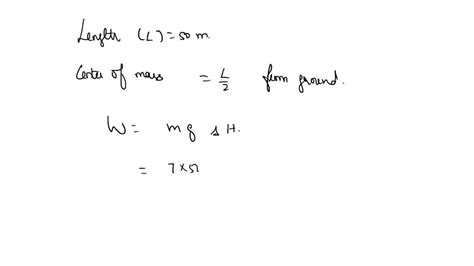 Length (L) = 50 m.
Center of mass = L/2 from ground.
W = m g Δ H.
= 7 × 5